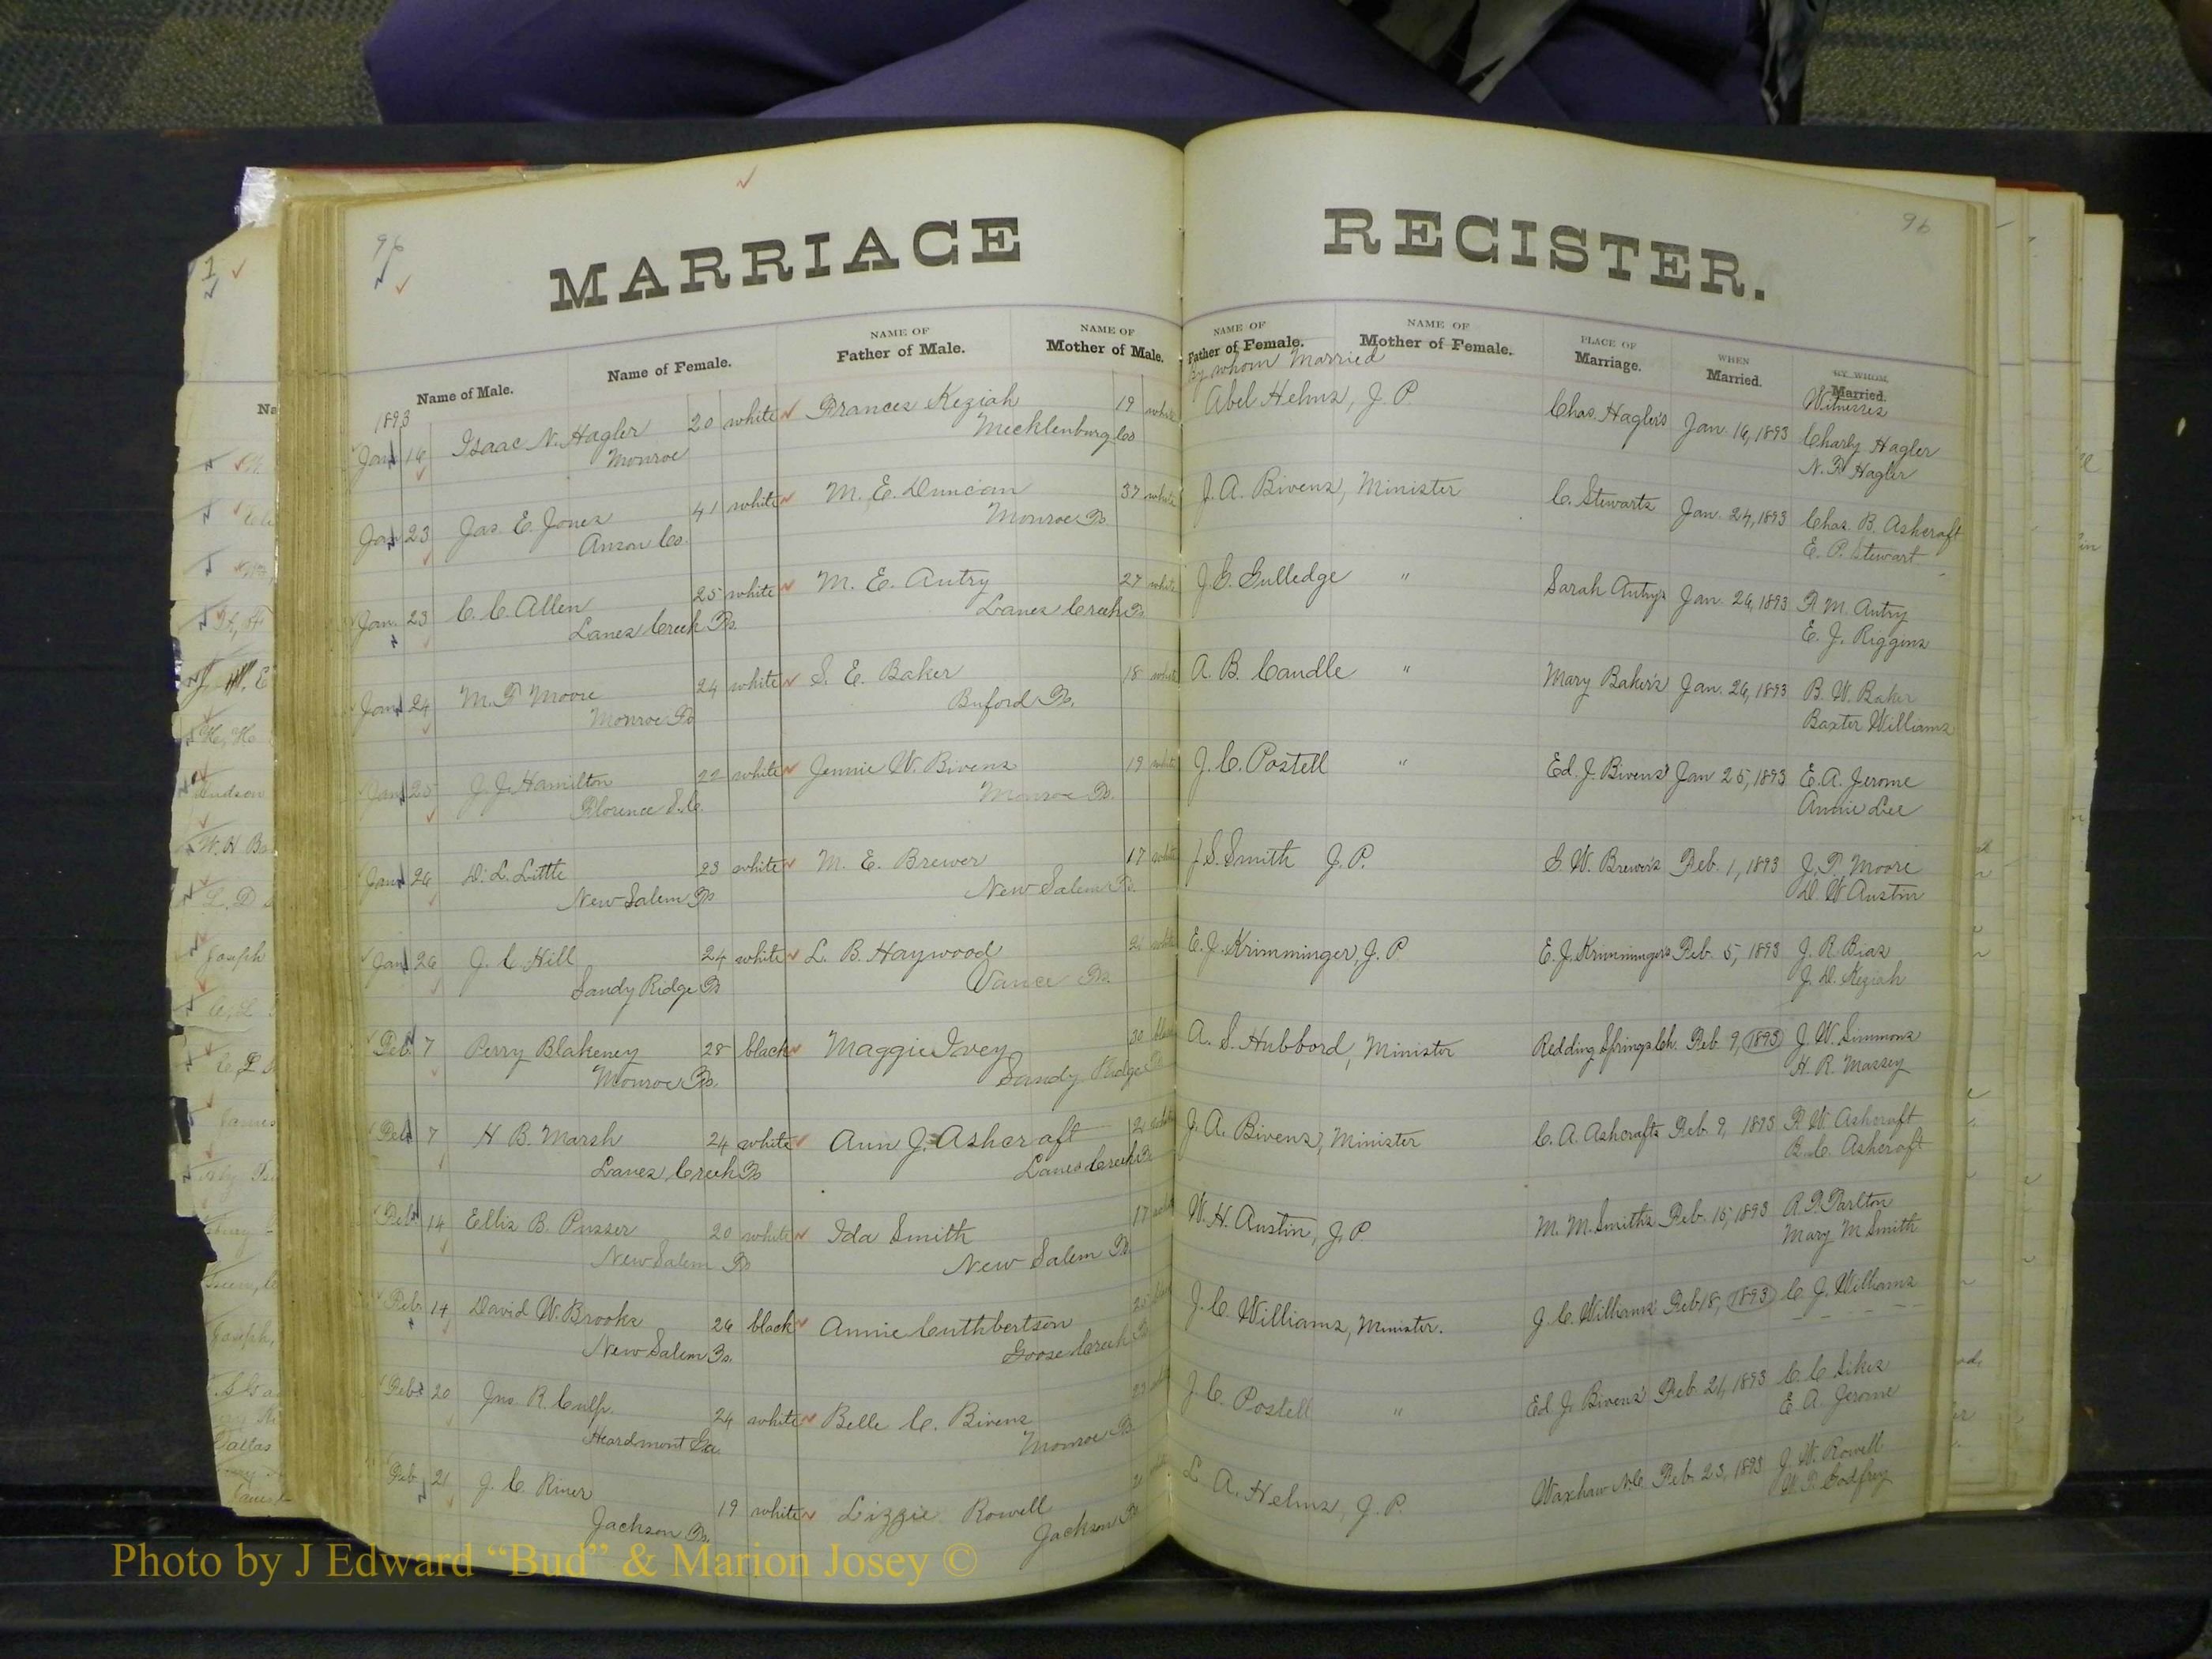 96
96
MARRIAGE REGISTER.
Name of Male.
Name of Female.
NAME OF
Father of Male.
NAME OF
Mother of Male.
NAME OF
Father of Female.
By whom Married
NAME OF
Mother of Female.
PLACE OF
Marriage.
WHEN
Married.
BY WHOM
Married.
Witnesses
1893
Jan 16 Isaac N. Hagler 20 white Frances Keziah 19 white Abel Helms, J. P. Chas. Hagler's Jan. 16, 1893 Charly Hagler
Monroe Mecklenburg Co N. F. Hagler
Jan 23 Jas. E. Jones 41 white M. E. Duncan 37 white J. A. Bivens, Minister C. Stewarts Jan. 24, 1893 Chas. B. Ashcraft
Anson Co. Monroe Tp. E. P. Stewart
Jan. 23 C. C. Allen 25 white M. E. Autry 27 white J. G. Gulledge " Sarah Autry's Jan. 26, 1893 F. M. Autry
Lanes Creek Tp. Lanes Creek Tp. E. J. Riggins
Jan 24 M. F. Moore 24 white S. E. Baker 18 white A. B. Caudle " Mary Baker's Jan. 26, 1893 B. W. Baker
Monroe Tp Buford Tp. Baxter Williams
Jan 25 J. J. Hamilton 22 white Jennie W. Bivens 19 white J. C. Postell " Ed. J. Bivens' Jan 25, 1893 E. A. Jerome
Florence S.C. Monroe Tp. Annie Lee
Jan 26 D. L. Little 23 white M. E. Brewer 17 white J. S. Smith J. P. G. W. Brewer's Feb. 1, 1893 J. T. Moore
New Salem Tp New Salem Tp. D. W. Austin
Jan 26 J. C. Hill 24 white L. B. Haywood 21 white E. J. Krimminger, J. P E. J. Krimminger's Feb. 5, 1893 J. R.
Sandy Ridge Tp Vance Tp. J. D. Keziah
Feb 7 Perry Blakeney 28 black Maggie Ivey 30 black A. S. Hubbord, Minister Redding Springs Ch. Feb. 9, 1893 J. W. Simmons
Monroe Tp. Sandy Ridge Tp H. R. Massey
Feb 7 H. B. Marsh 24 white Ann J. Ashcraft 21 white J. A. Bivens, Minister C. A. Ashcrafts Feb. 9, 1893 F. W. Ashcraft
Lanes Creek Tp Lanes Creek Tp B. C. Ashcraft
Feb 14 Ellis B. Pusser 20 white Ida Smith 17 white W. H. Austin, J. P. M. M. Smith's Feb. 15, 1893 A. F. Parlton
New Salem Tp New Salem Tp. Mary M Smith
Feb 14 David W. Brooks 26 black Annie Cuthbertson black J. C. Williams, Minister. J. C. Williams' Feb 18, 1893 C. J. Williams
New Salem Tp. Goose Creek Tp
Feb 20 Jno. R. Culp. 24 white Belle C. Bivens 23 white J. C. Postell " Ed J. Bivens' Feb. 21, 1893 C. C. Sikes
Heardmont Ga. Monroe Tp. E. A. Jerome
Feb 21 J. C. Riner 19 white Lizzie Rowell L. A. Helms, J. P. Waxhaw N.C. Feb. 23, 1893 J. W. Rowell
Jackson Tp. Jackson Tp W. P. Godfrey
Photo by J Edward “Bud” & Marion Josey ©